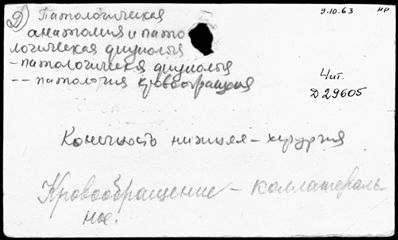 2) Патологическая
анатомия и пато
логическая физиология
- патологическая физиология
-- патология кровообращения
9.10.63 НР
Чит.
Д29605
Конечность нижняя - хирургия
Кровообращение - коллатераль
ное.